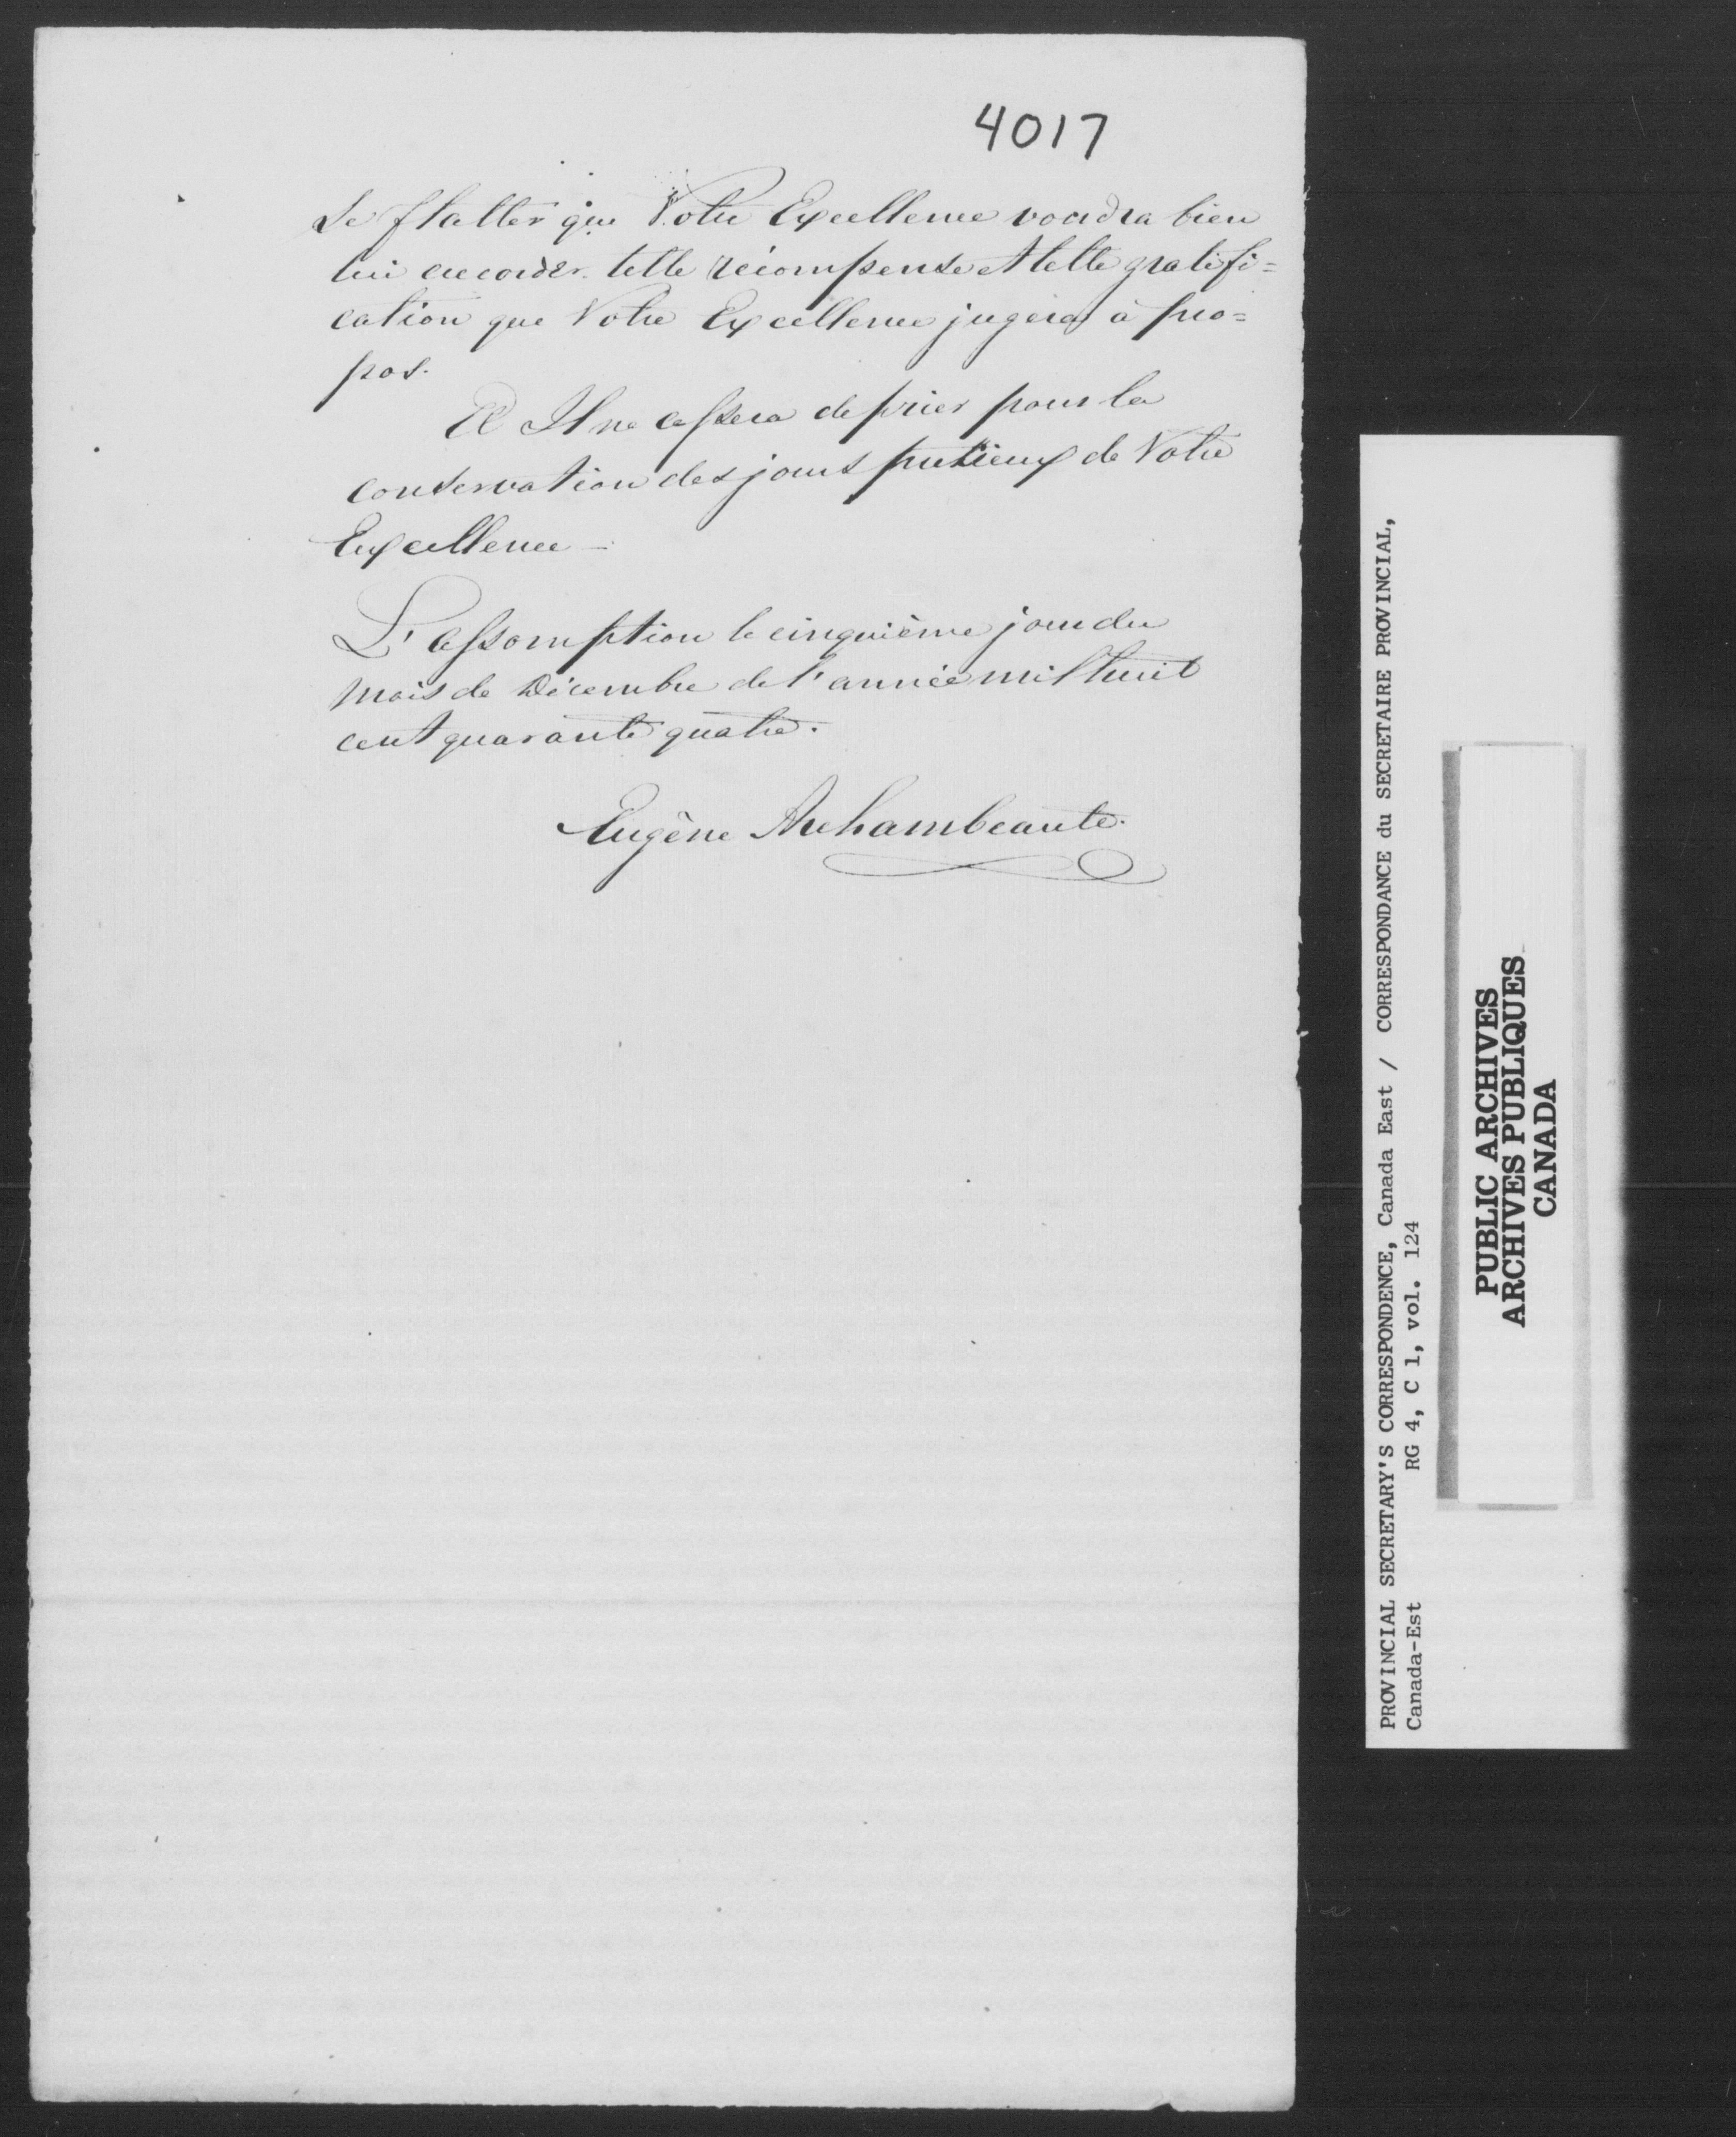 4017
Se flatter que Votre Excellence voudra bien
lui accorder telle récompense et telle gratifi=
cation que Votre Excellence jugera à pro=
pos.
Et Il ne cessera de prier pour la
conservation des jours precieux de Votre
Excellence -
L'assomption le cinquième jour du
Mois de Décembre de l'année mil huit
cent quarante quatre.
Eugène Archambeaute.
PROVINCIAL SECRETARY'S CORRESPONDENCE, Canada East / CORRESPONDANCE du SECRETAIRE PROVINCIAL,
Canada-Est RG 4, C 1, vol. 124
PUBLIC ARCHIVES
ARCHIVES PUBLIQUES
CANADA